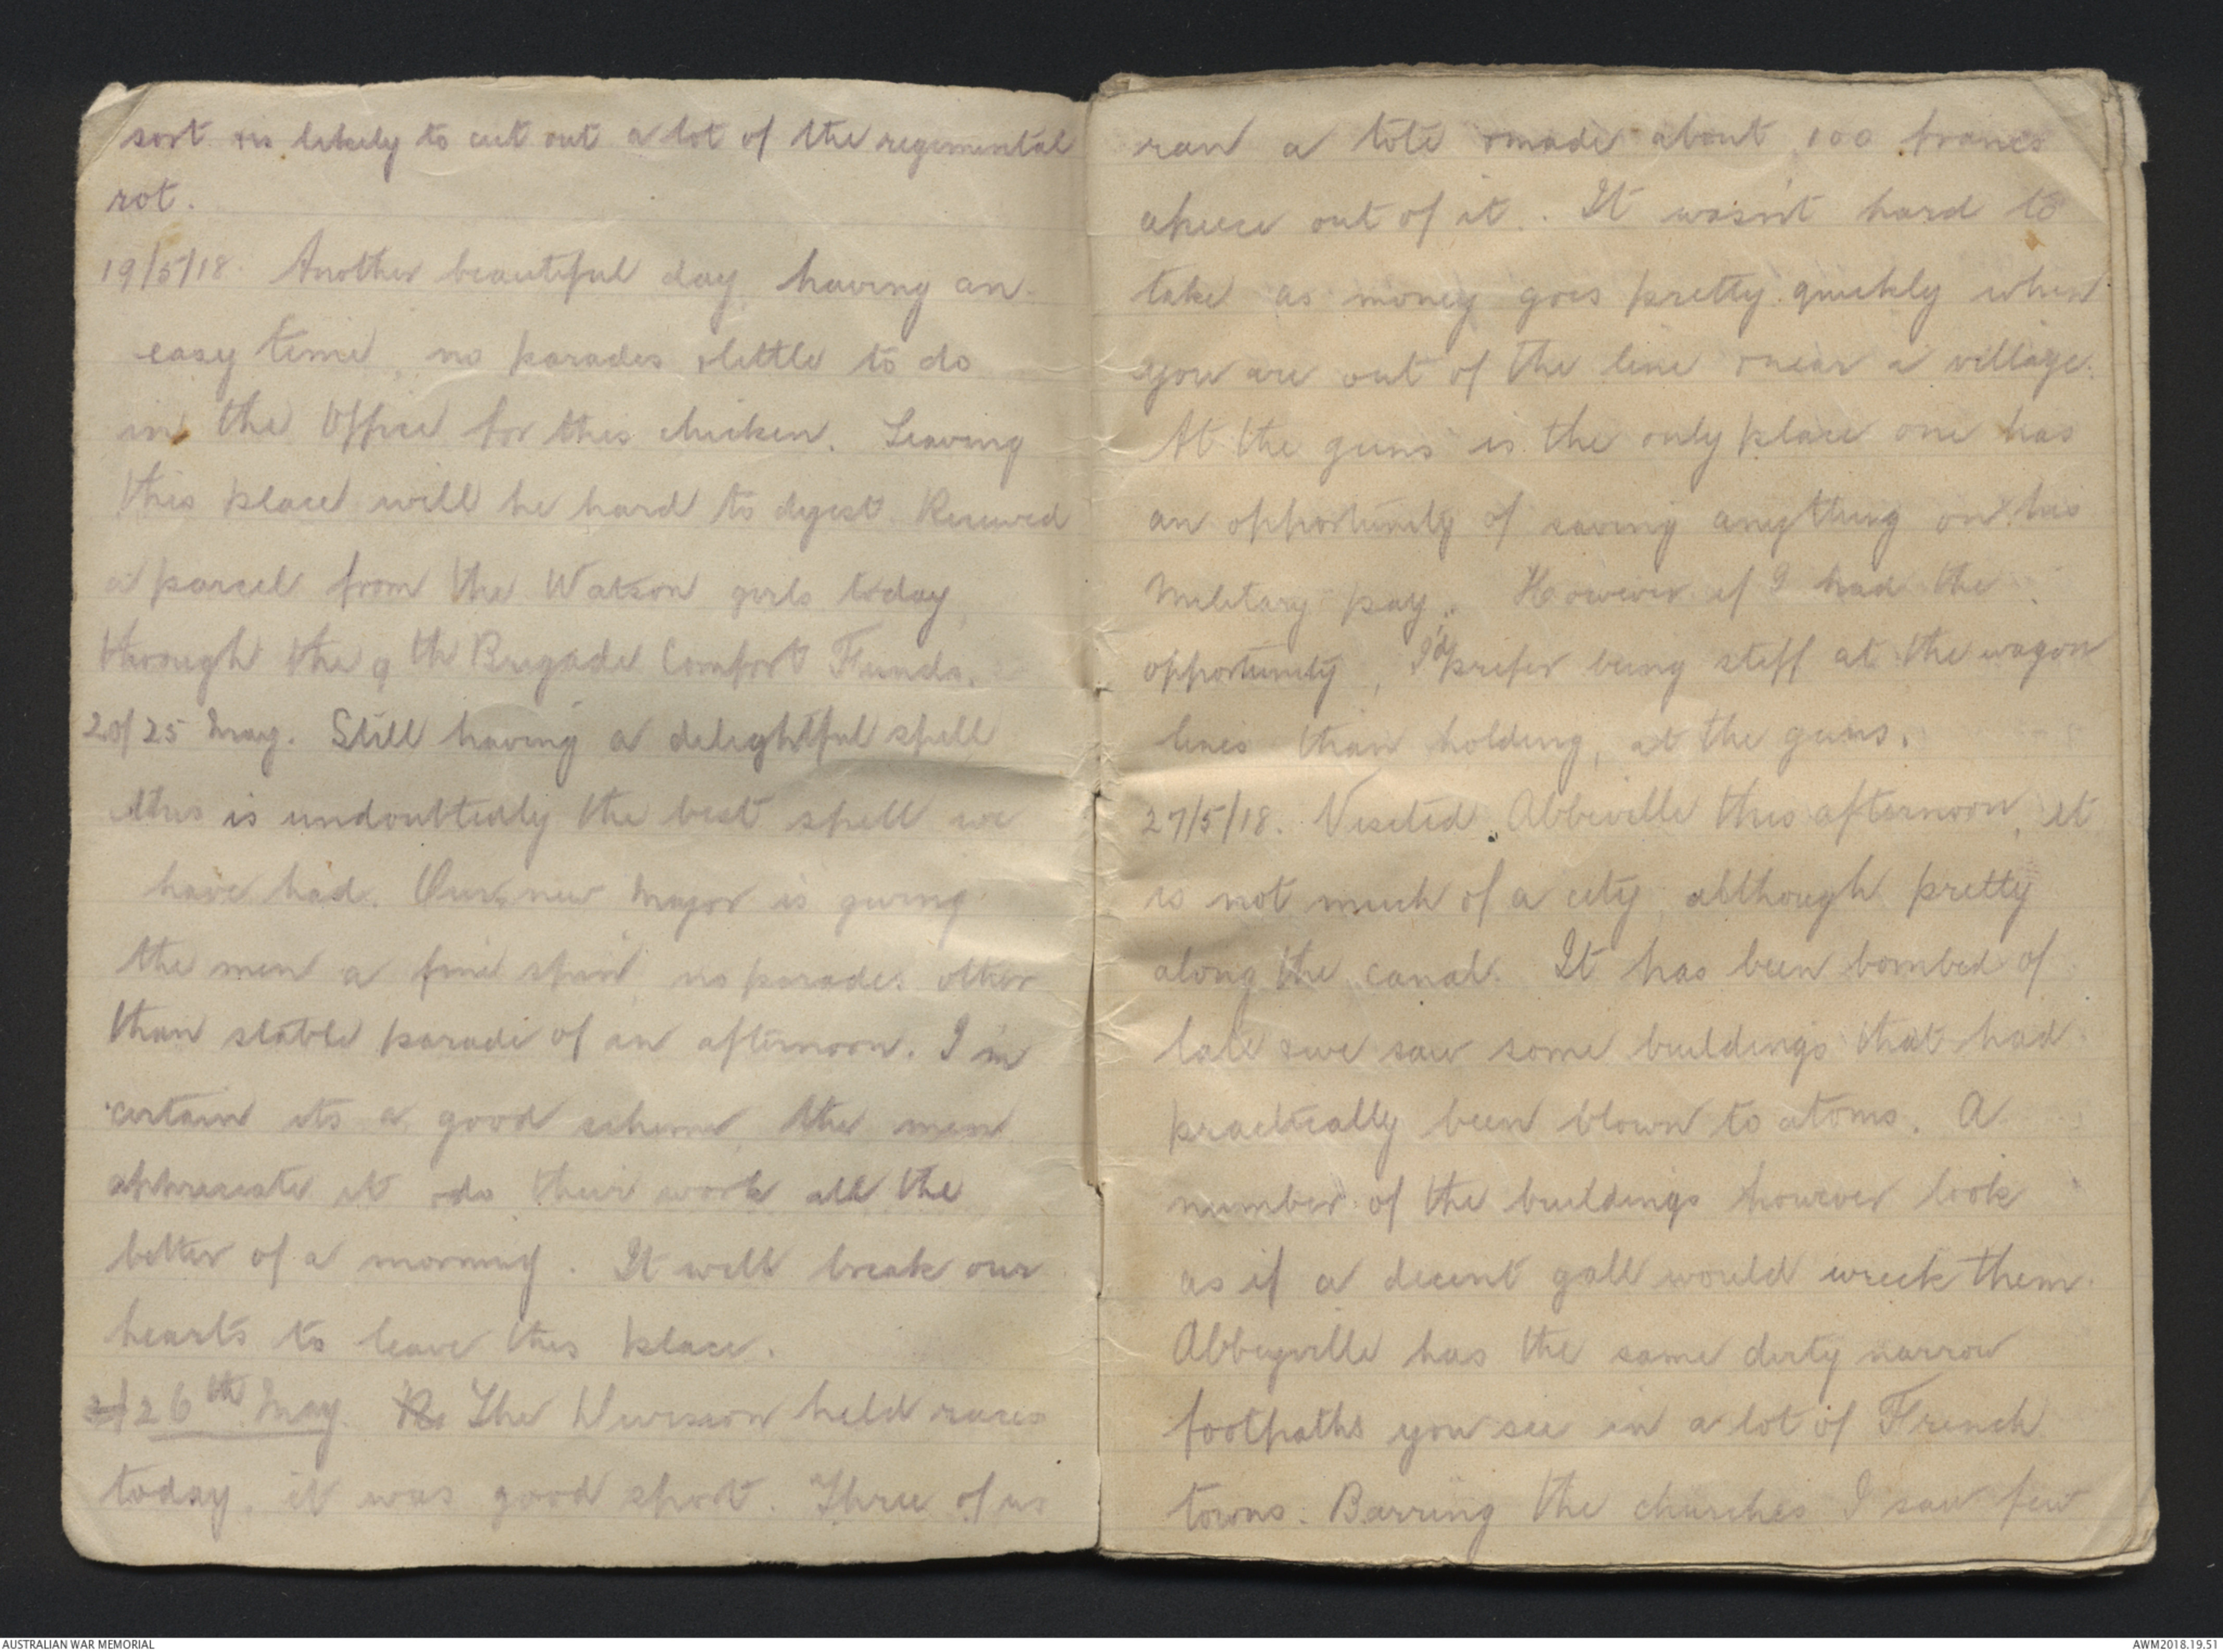 sort is likely to cut out a lot of the regimental
rot.
19/5/18. Another beautiful day, having an
easy time, no parades & little to do
in the Office for this chicken. Leaving
this place will be hard to digest. Received
a parcel from the Watson girls today,
through the 9th Brigade Comfort Funds.
20/25 May. Still having a delightful spell
this is undoubtedly the best spell we
have had. Our new Major is giving
the men a fine spin, no parades other
than stable parade of an afternoon. I'm
certain its a good scheme, the men
appreciate it & do their work all the
better of a morning. It will break our
hearts to leave this place.
26th May. The Division held races
today, it was good sport. Three of us
ran a tote & made about 100 francs
apiece out of it. It wasn't hard to
take as money goes pretty quickly when
you are out of the line & near a village.
At the guns is the only place one has
an opportunity of saving anything on his
Military pay. However if I had the
opportunity, I'd prefer being stiff at the wagon
lines than holding, at the guns.
27/5/18. Visited Abbeville this afternoon, it
is not much of a city, although pretty
along the canal. It has been bombed of
late & we saw some buildings that had
practically been blown to atoms. A
number of the buildings however look
as if a decent gall would wreck them.
Abbeyville has the same dirty narrow
footpaths you see in a lot of French
towns. Barring the churches I saw few
AUSTRALIAN WAR MEMORIAL
AWM2018.19.51